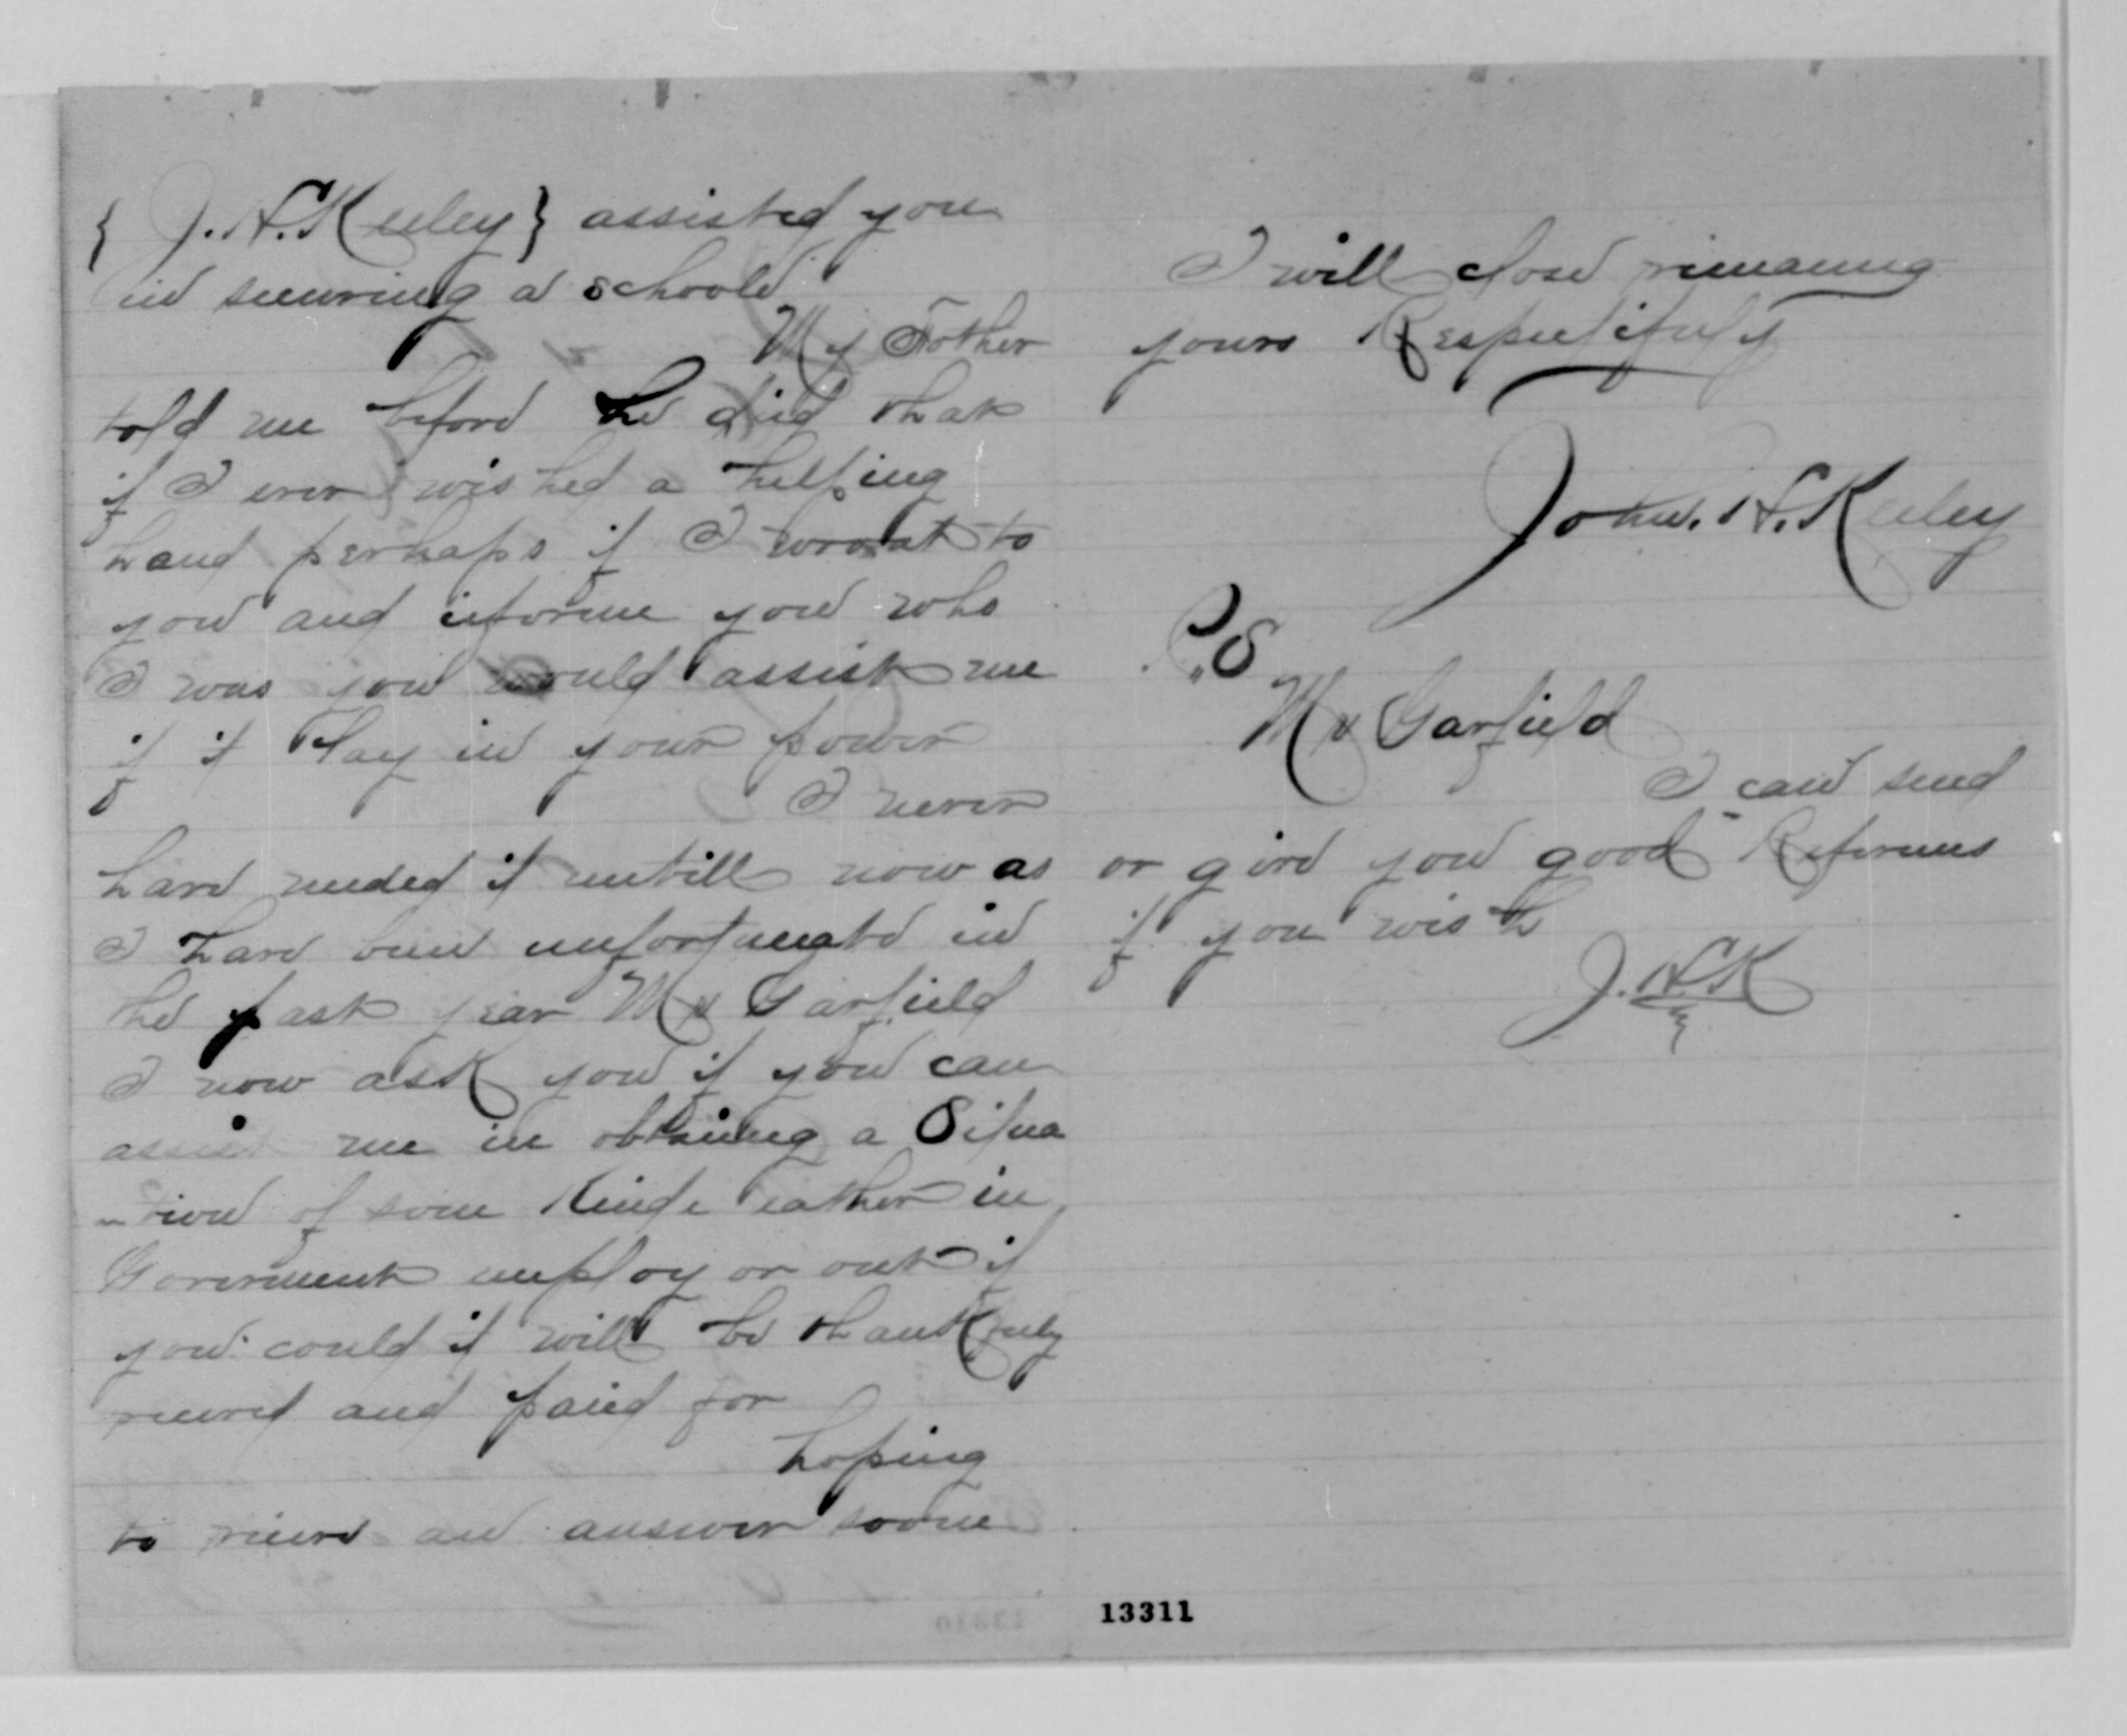 { J. H. Keeley } assisted you
in securing a schoole
My Father
told me before he died that
if I ever wished a helping
hand perhaps if I wroat to
you and informe you who
I was you would assist me
if it lay in your power
I never
have needed it untill now as
I have ben unfortunate in
the past year Mr Garfield
I now ask you if you can
assist me in obtaining a Situa
tion of some kinde eather in
Goverment employ or out if
you could it will be thankfuly
recived and paid for
hoping
to recive an answer soone
I will close remaning
yours Respectifuly
John. H. Keeley
P.S
Mr Garfield
I can send
or give you good Referenses
if you wish
J. H. K
13311